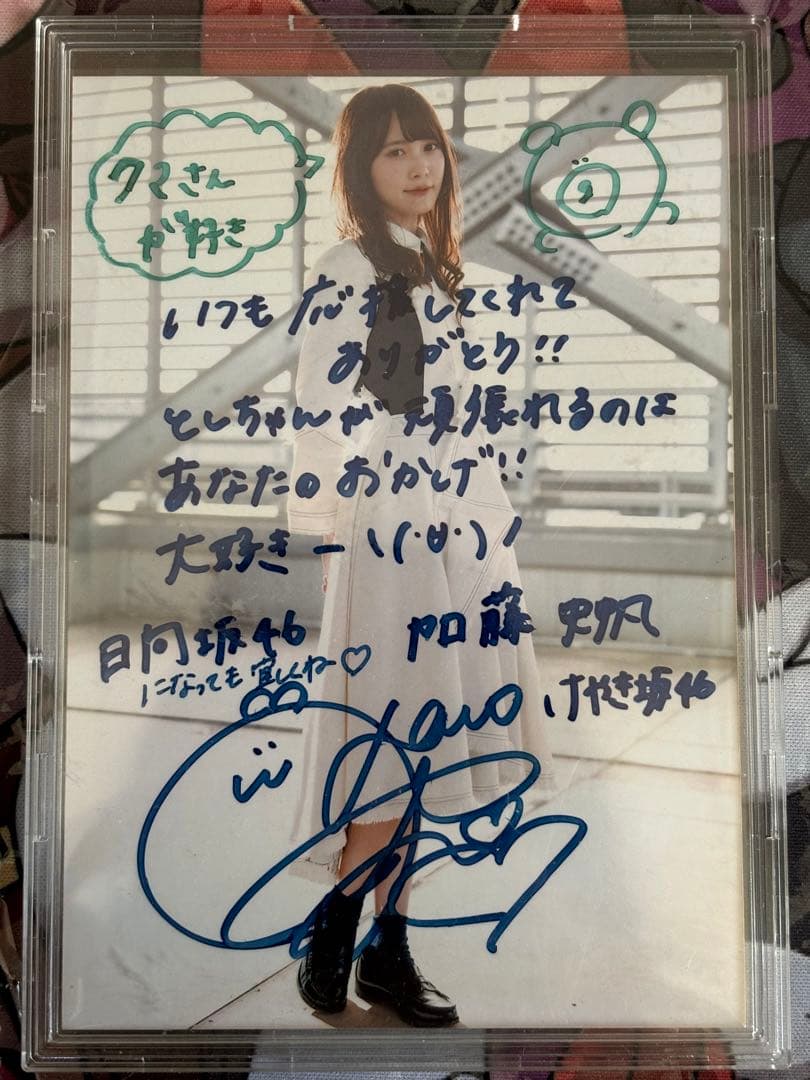 クマさん
が好き
いつも応援してくれて
ありがとう!!
としちゃんが頑張れるのは
あなたのおかげ!!
大好きー\(・∀・)/
日向坂46
になっても宜しくねー♡
加藤史帆
けやき坂46